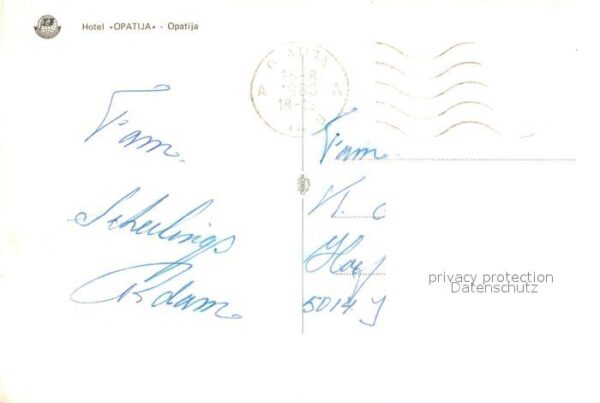 Hotel «OPATIJA» - Opatija
OPATIJA
16-8
1980
18-19
A A
Fam.
Scheelings
Rdam.
Fam.
5014
privacy protection
Datenschutz